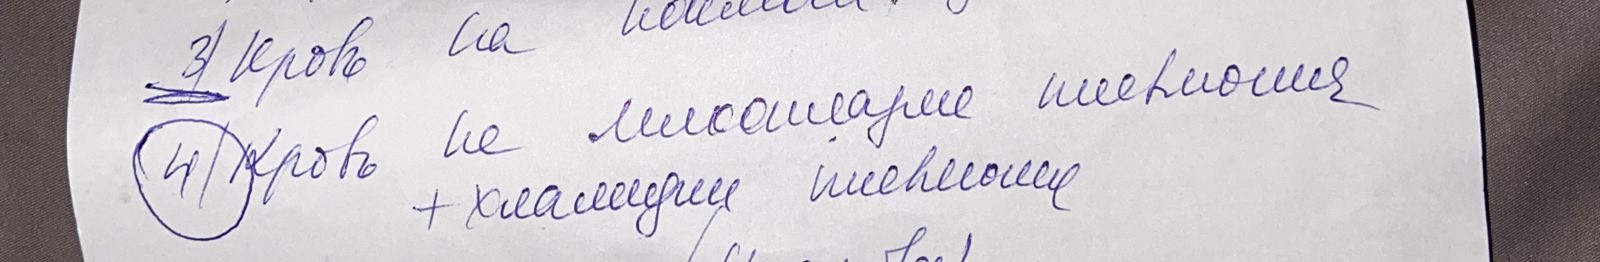 3) Кровь на
4) Кровь на микоплазме пневмония
+ хламидии пневмоние